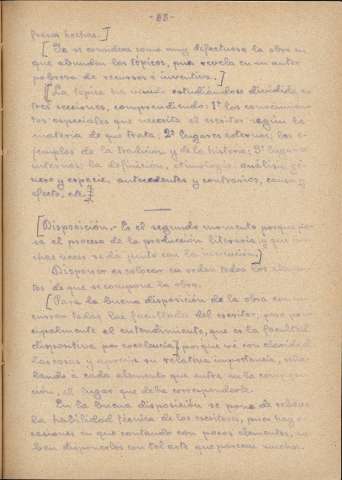 - 83 -
frases hechas.]
[Se se considera como muy defectuosa la obra en
que abundan los tópicos, pues revela en su autor
pobreza de recursos e inventiva.]
[La tópica ha venido estudiándose dividida en
tres secciones, comprendiendo: 1º los conocimien-
tos especiales que necesita el escritor según la
materia de que trata; 2º lugares externos, los e-
jemplos de la tradición y de la historia; 3º lugares
internos, la definición, etimología, análisis, gé-
nero y especie, antecedentes y contrarios, causa y
efecto, etc.]
[Disposición.- Es el segundo momento porque pa-
sa el proceso de la producción literaria y que mu-
chas veces se da junto con la invención.]
Disponer es colocar en orden todos los elemen-
tos de que se compone la obra.
[Para la buena disposición de la obra con-
curren todas las facultades del escritor, pero prin-
cipalmente el entendimiento, que es la facultad
dispositiva por excelencia,] porque ve con claridad
las cosas y aprecia su relativa importancia, seña-
lando a cada elemento que entre en la composi-
ción, el lugar que debe corresponderle.
En la buena disposición se pone de relieve
la habilidad técnica de los escritores, pues hay o-
casiones en que contando con pocos elementos, sa-
ben disponerlos con tal arte que parecen muchos.